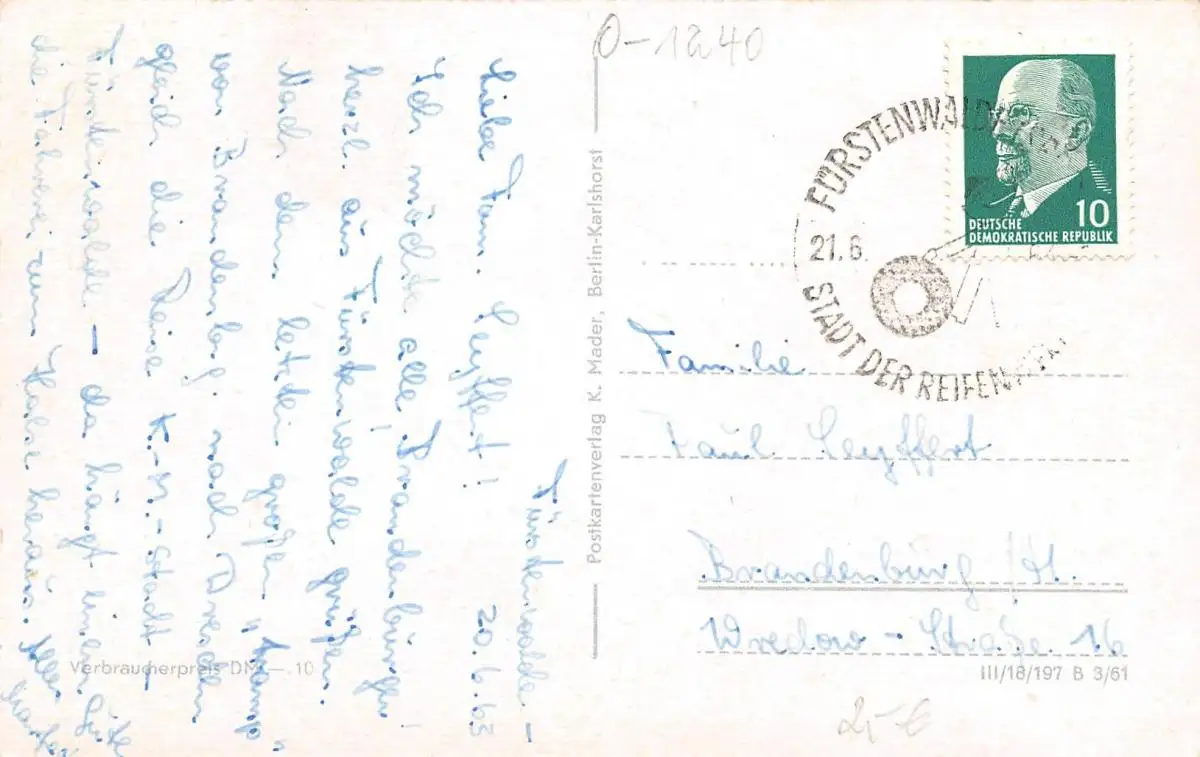 Fürstenwalde –
20.6.63
Liebe Fam. Seyffert!
Ich möchte alle Brandenburger
herzl. aus Fürstenwalde grüßen!
Nach dem letzten großen "Kampf"
von Brandenbg. nach Dresden
gleich die Reise K.M.-Stadt –
Fürstenwalde – da hängt einem
die Fahrerei zum Halse heraus.
O-1240
Postkartenverlag K. Mader, Berlin-Karlshorst
DEUTSCHE
DEMOKRATISCHE REPUBLIK
10
FÜRSTENWALDE
21.6.
STADT DER REIFEN
Familie
Paul Seyffert
Brandenburg /H.
Wredow-Straße 16
Verbraucherpreis DM —.10
III/18/197 B 3/61
2,- €